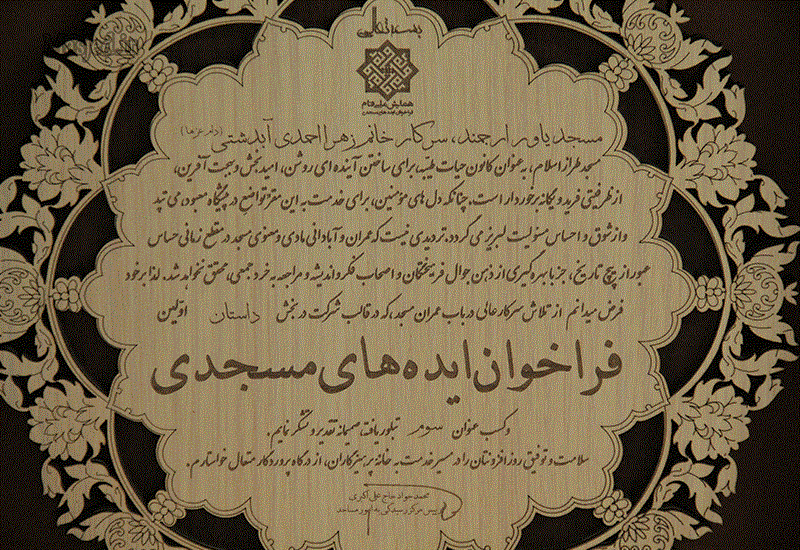 بسمه تعالی
همایش ملی قام
فراخوان ایده های مسجدی
مسجد یاور ارجمند، سرکار خانم زهرا احمدی آبدشتی (دام عزها)
مسجد طراز اسلام، به عنوان کانون حیات طیبه برای ساختن آینده ای روشن، امیدبخش و بهجت آفرین،
از ظرفیتی فرید و یگانه برخوردار است. چنانکه دل های مؤمنین، برای خدمت به این مقر تواضع در پیشگاه معبود، می تپد
و از شوق و احساس مسئولیت لبریز می گردد. تردیدی نیست که عمران و آبادانی مادی و معنوی مسجد در مقطع زمانی حساس
عبور از پیچ تاریخ، جز با بهره گیری از ذهن جوال فرهیختگان و اصحاب فکر و اندیشه و مراجعه به خرد جمعی، محقق نخواهد شد. لذا بر خود
فرض میدانم از تلاش سرکار عالی در باب عمران مسجد، که در قالب شرکت در بخش داستان اولین
فراخوان ایده های مسجدی
و کسب عنوان سوم تبلور یافت، صمیمانه تقدیر و تشکر نمایم.
سلامت و توفیق روز افزونتان را در مسیر خدمت به خانه پرهیزکاران، از درگاه پروردگار متعال خواستارم.
محمد جواد حاج علی اکبری
رییس مرکز رسیدگی به امور مساجد